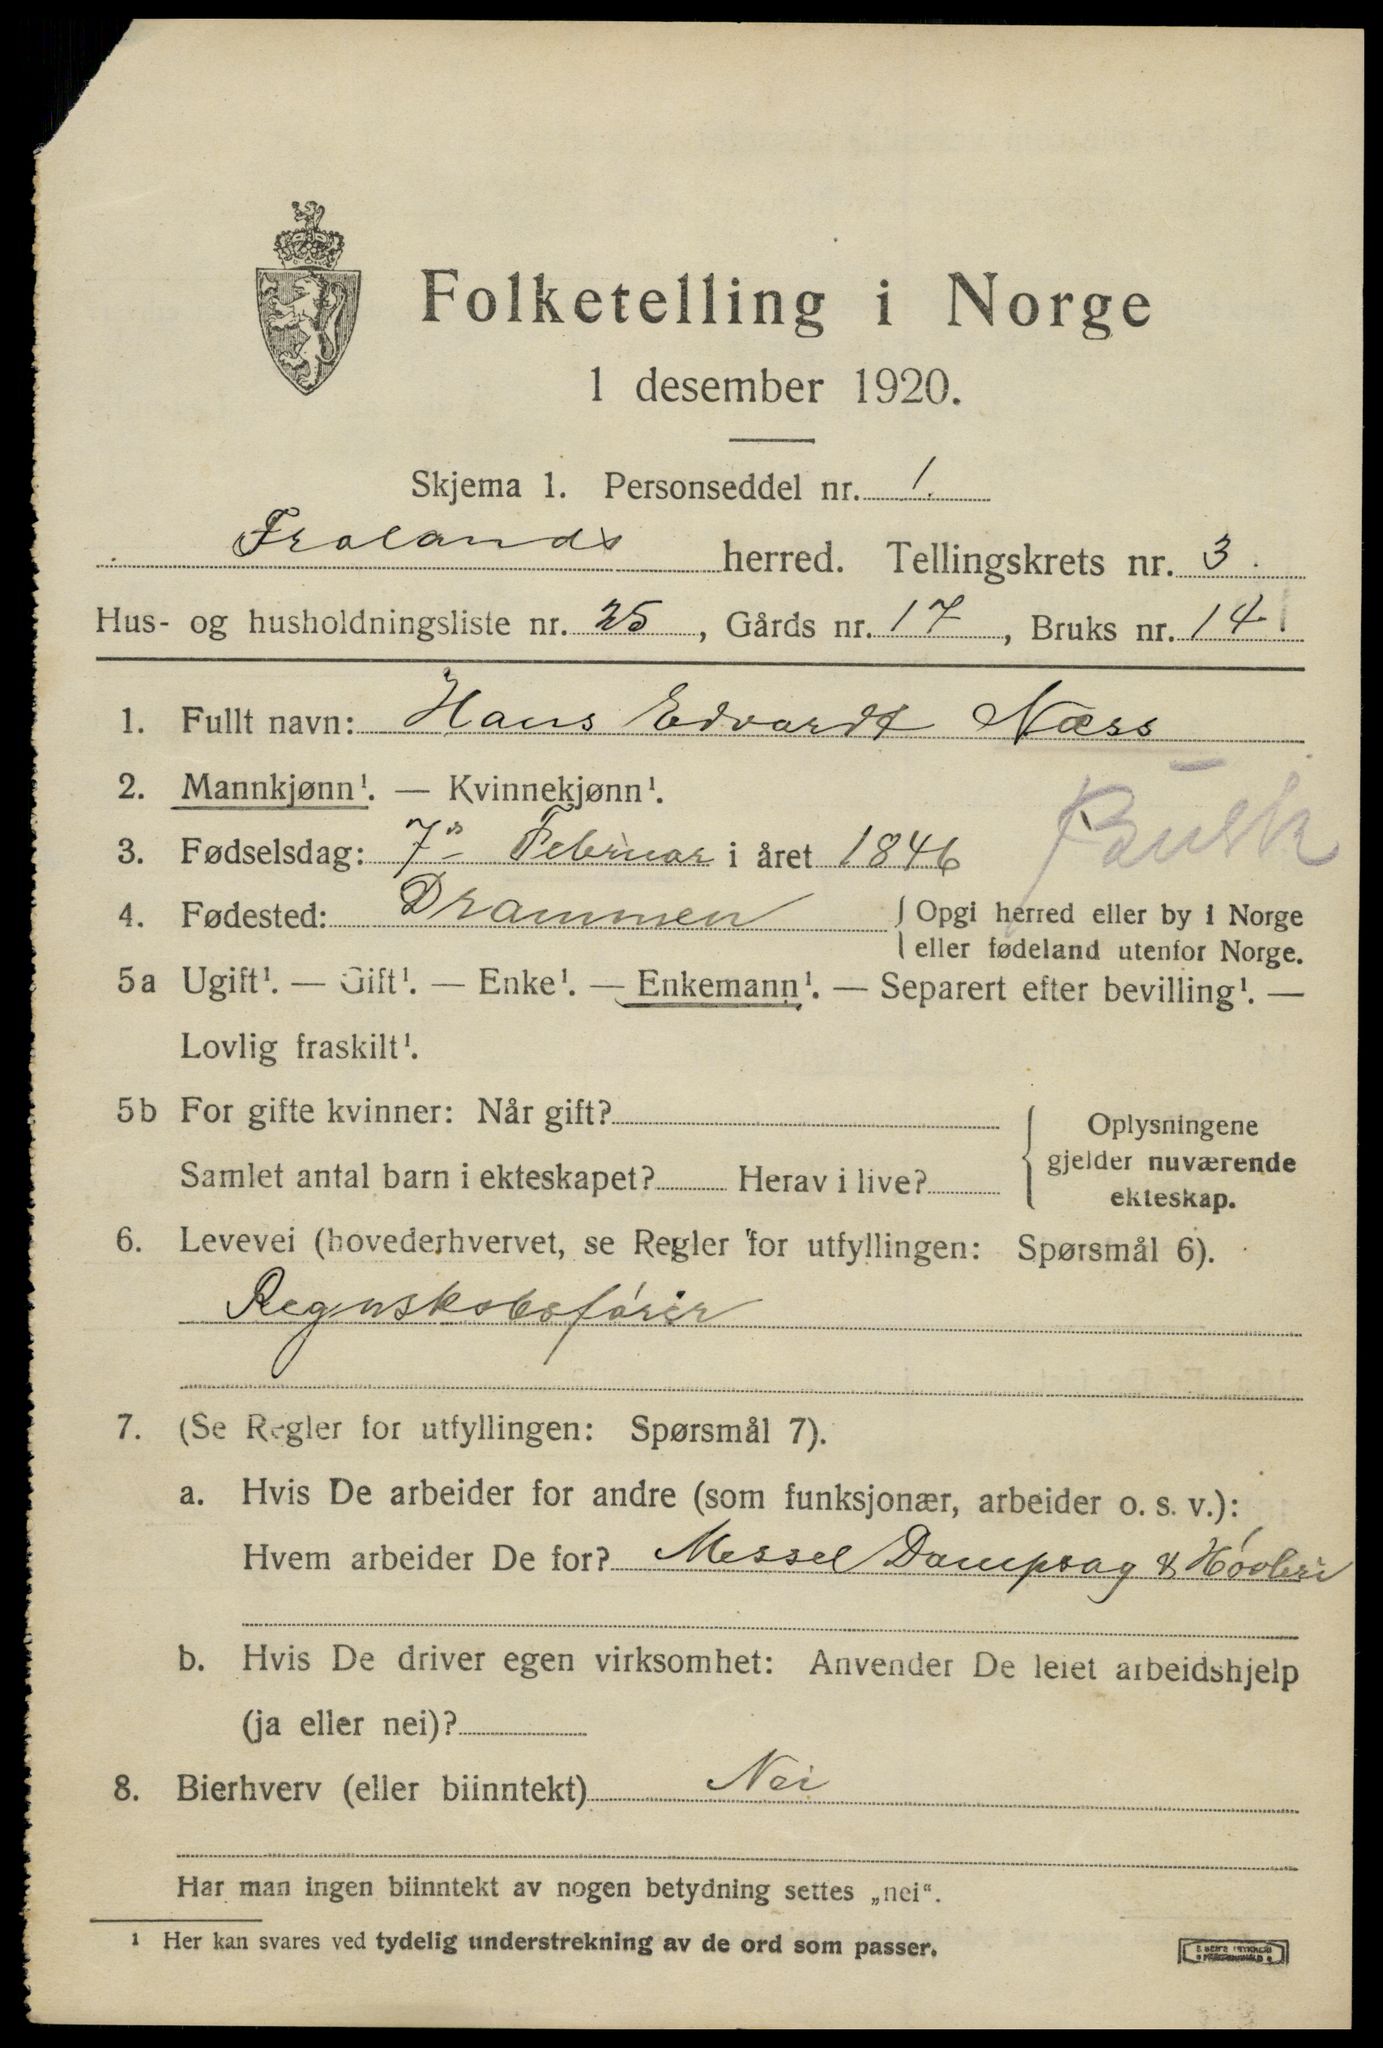 Folketelling i Norge
1 desember 1920.
Skjema 1. Personseddel nr. 1.
Frolands herred. Tellingskrets nr. 3.
Hus- og husholdningsliste nr. 25, Gårds nr. 17, Bruks nr. 14.
1. Fullt navn: Hans Edvardt Næss
2. Mannkjønn¹. — Kvinnekjønn¹.
Busk
3. Fødselsdag: 7de Februar i året 1846
4. Fødested: Drammen { Opgi herred eller by i Norge
eller fødeland utenfor Norge.
5a Ugift¹. — Gift¹. — Enke¹. — Enkemann¹. — Separert efter bevilling¹. —
Lovlig fraskilt¹.
5b For gifte kvinner: Når gift?
Samlet antal barn i ekteskapet? Herav i live?
{ Oplysningene
gjelder nuværende
ekteskap.
6. Levevei (hovederhvervet, se Regler for utfyllingen: Spørsmål 6).
Regnskabsfører
7. (Se Regler for utfyllingen: Spørsmål 7).
a. Hvis De arbeider for andre (som funksjonær, arbeider o. s. v.):
Hvem arbeider De for? Messel Dampsag & Høvleri
b. Hvis De driver egen virksomhet: Anvender De leiet arbeidshjelp
(ja eller nei)?
8. Bierhverv (eller biinntekt) Nei
Har man ingen biinntekt av nogen betydning settes „nei“.
¹ Her kan svares ved tydelig understrekning av de ord som passer.